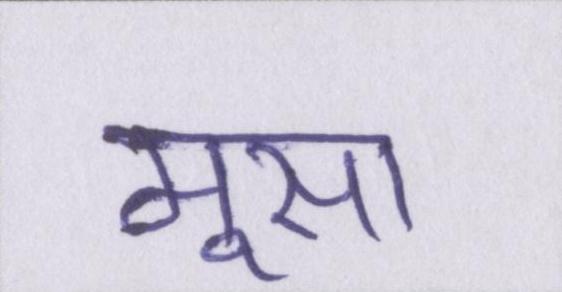 मूसा